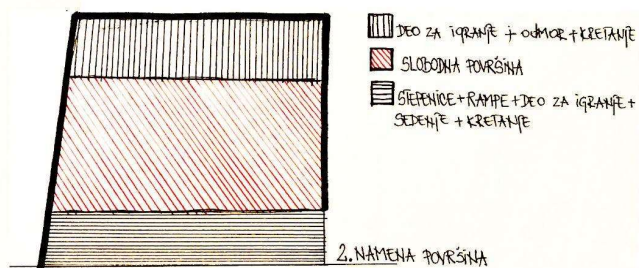 DEO ZA IGRANJE + ODMOR + KRETANJE
SLOBODNA POVRŠINA
STEPENICE + RAMPE + DEO ZA IGRANJE +
SEDENJE + KRETANJE
2. NAMENA POVRŠINA